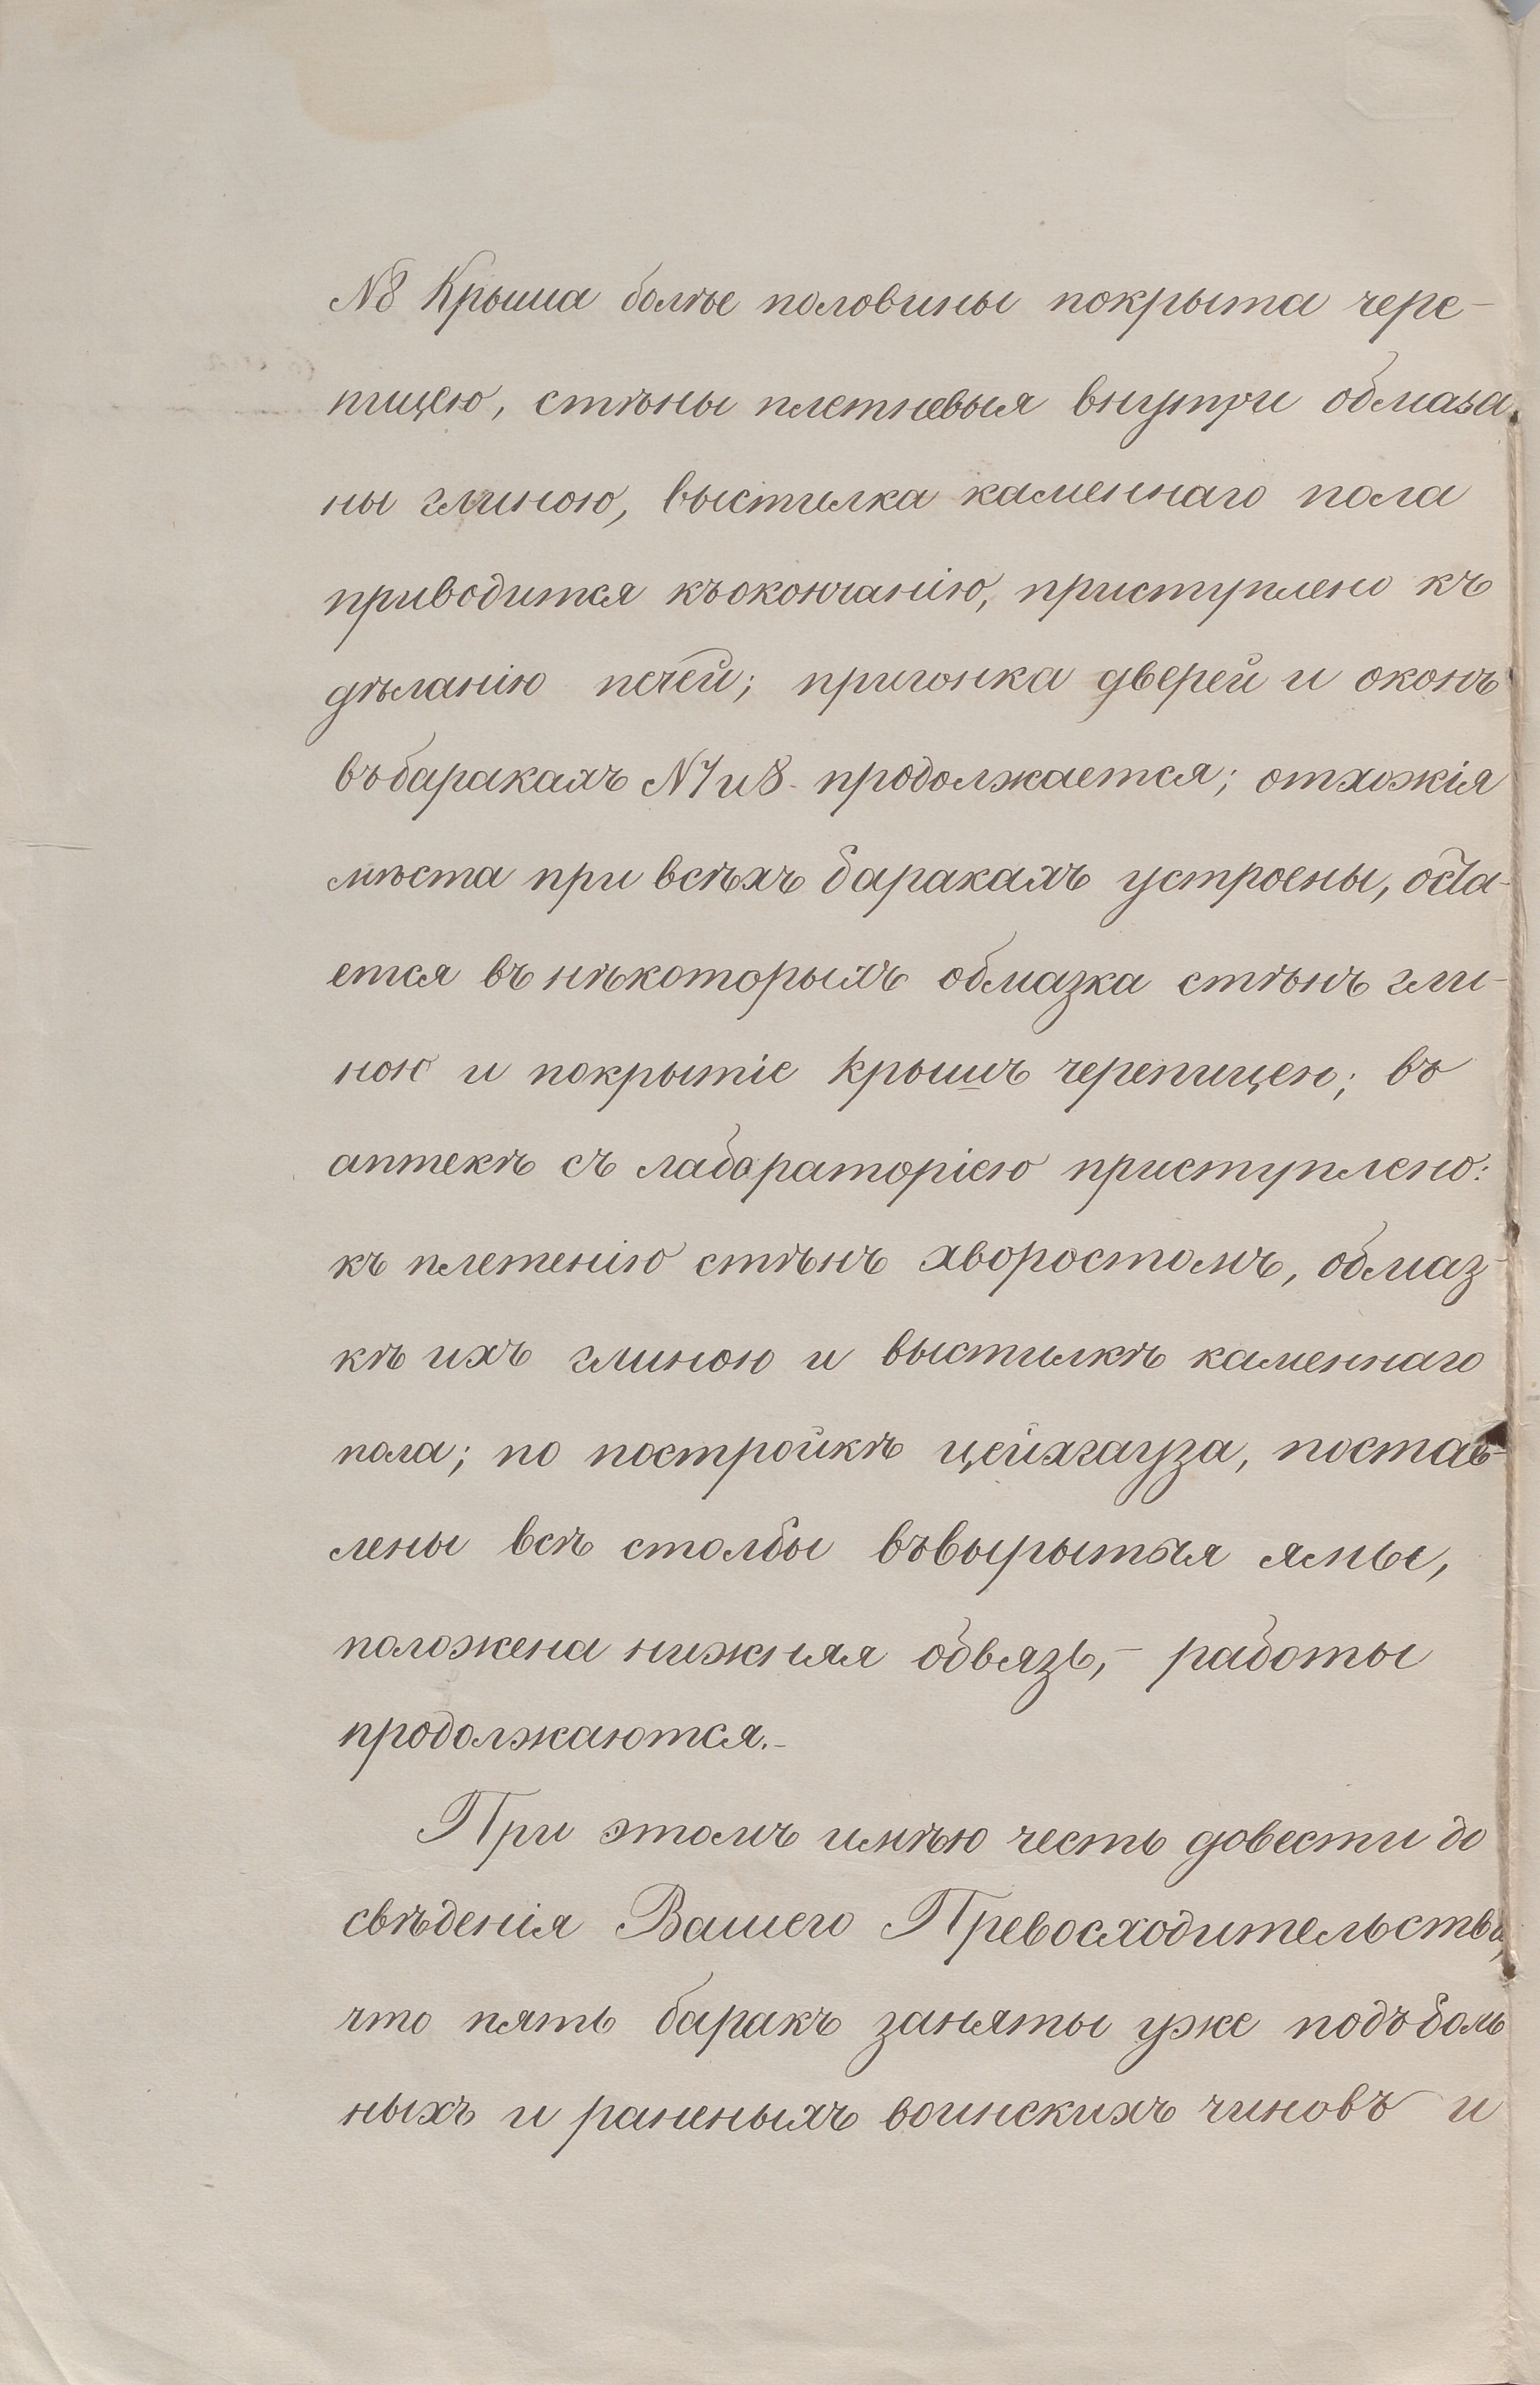 №8 Крыша болѣе половины покрыта чере-
пицею, стѣны плетневыя внутри обмаза
ны глиною, выстилка каменнаго пола
приводится къ окончанію, приступлено къ
дѣланію печей; пригонка дверей и оконъ
въ баракахъ №7 и 8 продолжается; отхожія
мѣста при всѣхъ баракахъ устроены, оста-
ется въ нѣкоторыхъ обмазка стѣнъ гли-
ною и покрытіе крышъ черепицею; въ
аптекѣ съ лабораторіею приступлено:
къ плетенію стѣнъ хворостомъ, обмаз-
кѣ ихъ глиною и выстилкѣ каменнаго
пола; по постройкѣ цейхгауза, постав-
лены всѣ столбы въ вырытыя ямы,
положена нижняя обвязь,- работы
продолжаются.-
При этомъ имѣю честь довести до
свѣденія Вашего Превосходительства,
что пять баракъ заняты уже подъ боль
ныхъ и раненыхъ воинскихъ чиновъ и